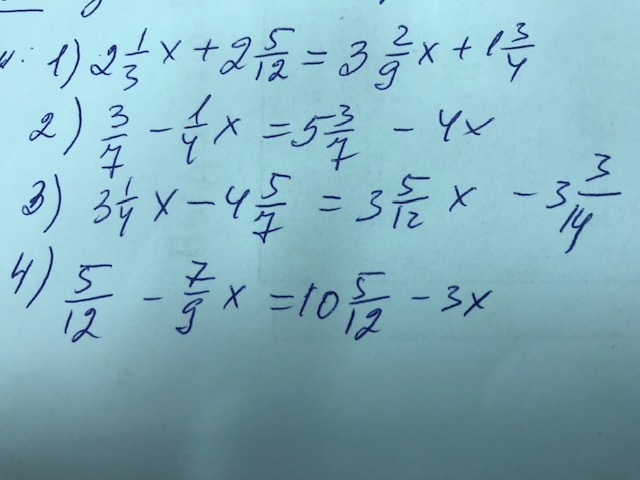 1) 2 1/3 x + 2 5/12 = 3 2/9 x + 1 3/4
2) 3/7 - 1/4 x = 5 3/7 - 4x
3) 3 1/4 x - 4 5/7 = 3 5/12 x - 3 3/14
4) 5/12 - 7/9 x = 10 5/12 - 3x